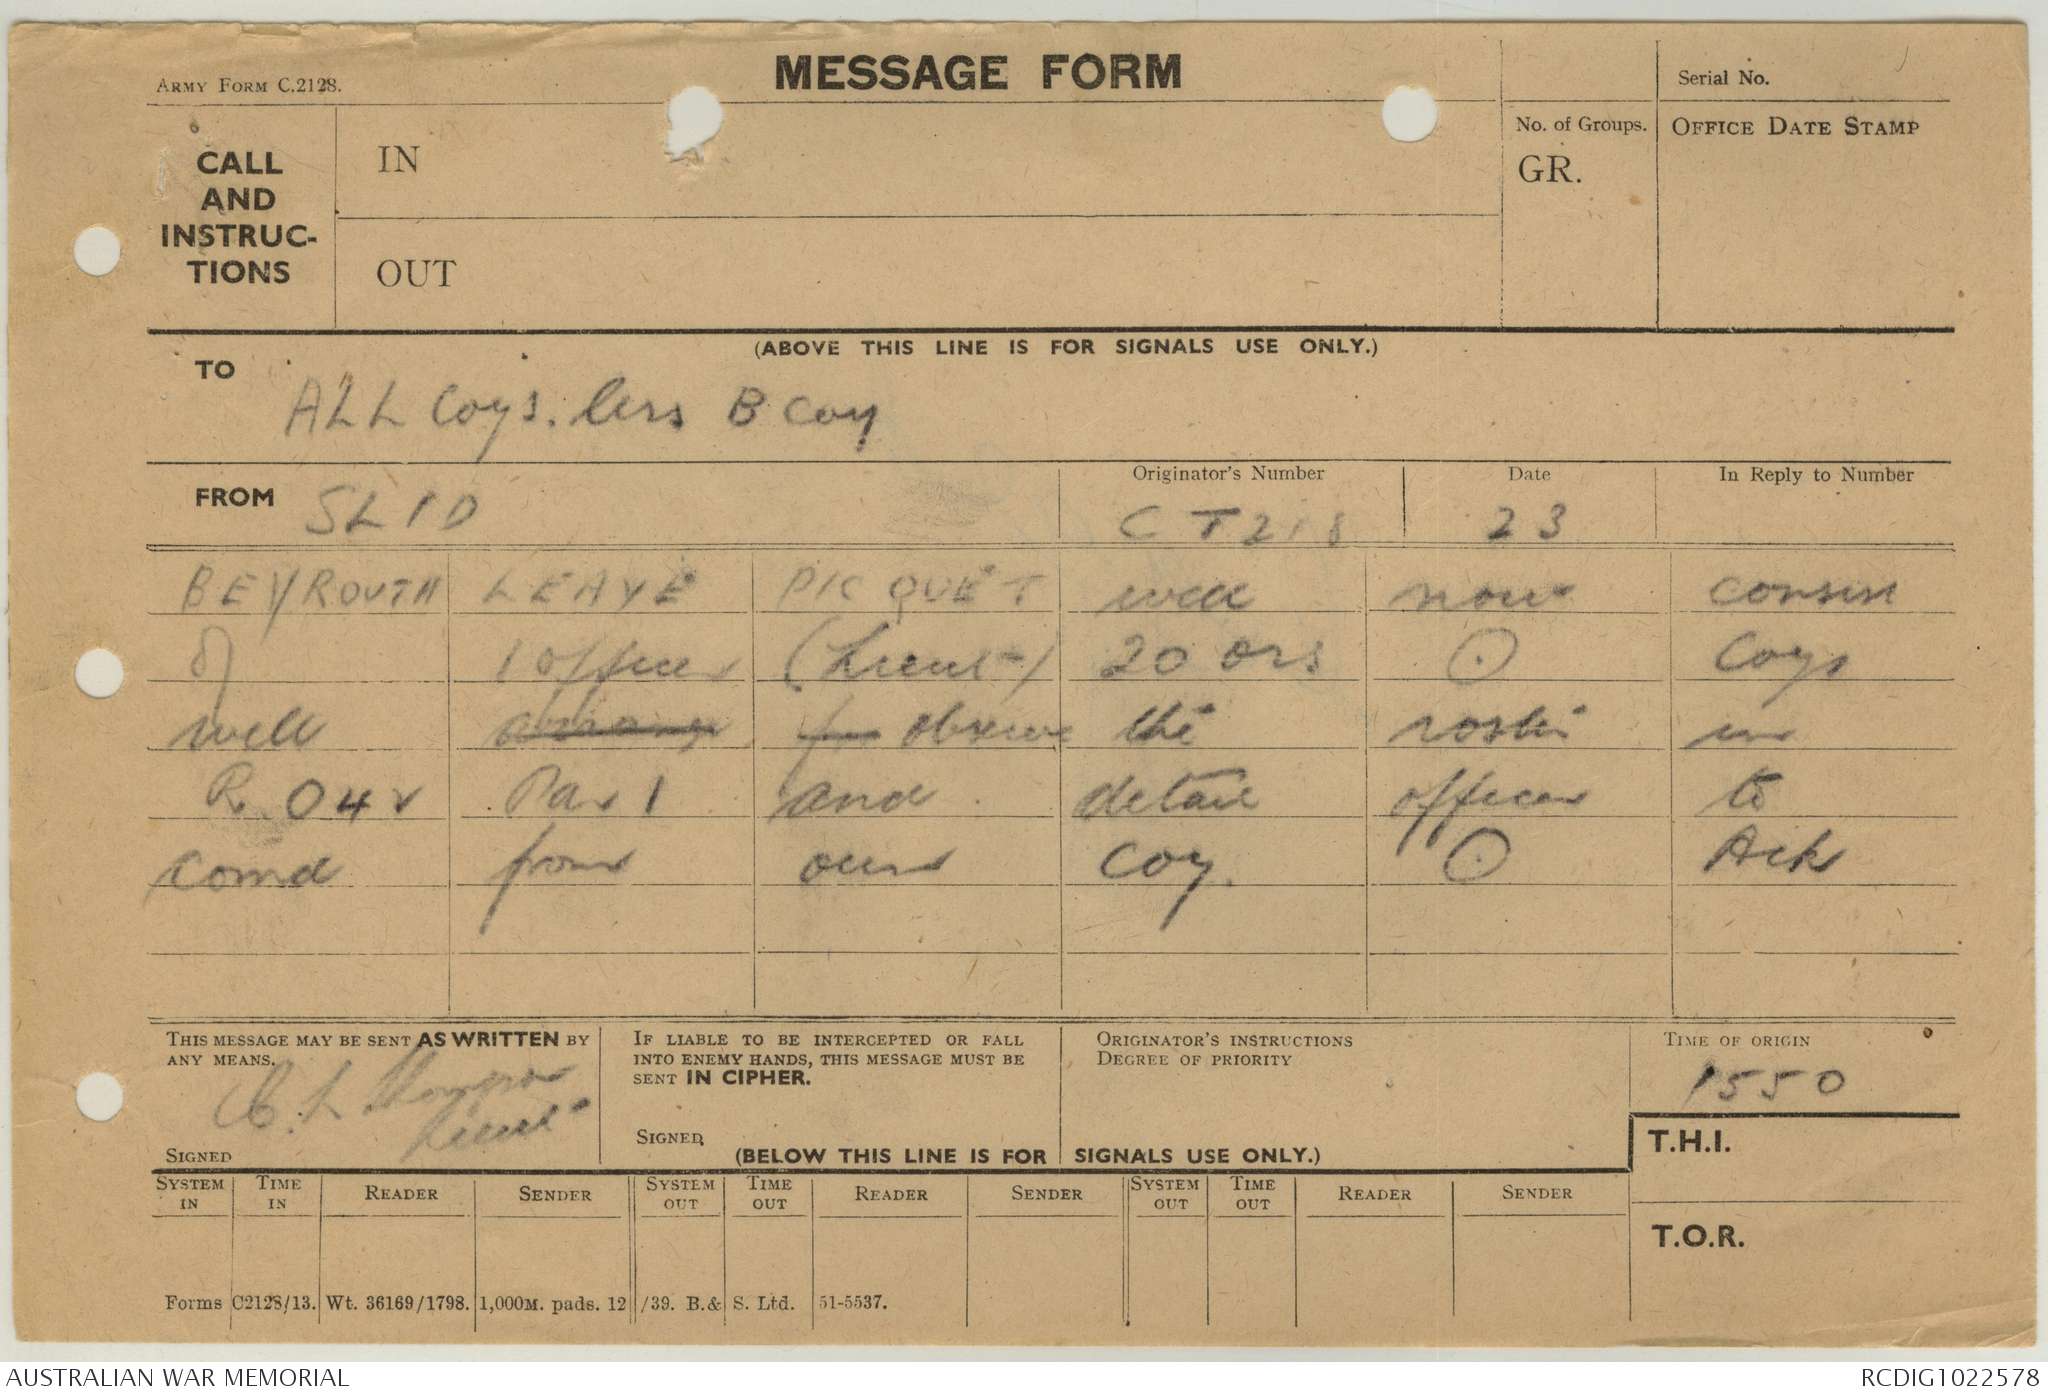 MESSAGE FORM
ARMY FORM C.2128.
Serial No.
CALL AND INSTRUC-TIONS
IN
No. of Groups.
GR.
OFFICE DATE STAMP
OUT
(ABOVE THIS LINE IS FOR SIGNALS USE ONLY.)
TO
ALL Coys. less B Coy
FROM SLID
Originator's Number CT218
Date 23
In Reply to Number
BEYROUTH LEAVE PICQUET will now consist
of 1 officer (Lieut) 20 ors ⊙ Coys
will arrange for observe the roster in
R.O 42 Par 1 and detail officer to
comd from own coy. ⊙ Ack
THIS MESSAGE MAY BE SENT AS WRITTEN BY
ANY MEANS.
Lieut
SIGNED
IF LIABLE TO BE INTERCEPTED OR FALL
INTO ENEMY HANDS, THIS MESSAGE MUST BE
SENT IN CIPHER.
SIGNED
ORIGINATOR'S INSTRUCTIONS
DEGREE OF PRIORITY
TIME OF ORIGIN
1550
(BELOW THIS LINE IS FOR SIGNALS USE ONLY.)
T.H.I.
SYSTEM IN TIME IN READER SENDER SYSTEM OUT TIME OUT READER SENDER SYSTEM OUT TIME OUT READER SENDER
T.O.R.
Forms C2128/13. Wt. 36169/1798. 1,000M. pads. 12/39. B.& S. Ltd. 51-5537.
AUSTRALIAN WAR MEMORIAL
RCDIG1022578